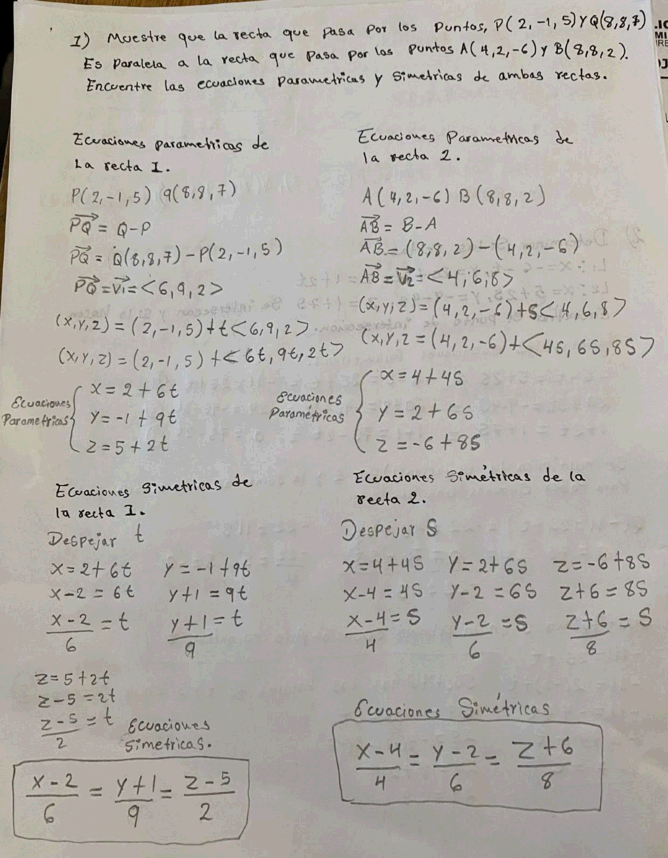 1) Muestre que la recta que pasa por los puntos, P(2,-1,5) Y Q(8,8,7)
Es paralela a la recta que pasa por los puntos A(4,2,-6) Y B(8,8,2).
Encuentre las ecuaciones parametricas y simetricas de ambas rectas.
Ecuaciones parametricas de
La recta 1.
P(2,-1,5) Q(8,8,7)
PQ = Q-P
PQ = Q(8,8,7) - P(2,-1,5)
PQ = V1 = <6,9,2>
(x,y,z) = (2,-1,5) + t<6,9,2>
(x,y,z) = (2,-1,5) + <6t,9t,2t>
Ecuaciones
Parametricas
x = 2+6t
y = -1+9t
z = 5+2t
Ecuaciones Parametricas de
la recta 2.
A(4,2,-6) B(8,8,2)
AB = B-A
AB = (8,8,2) - (4,2,-6)
AB = V2 = <4,6,8>
(x,y,z) = (4,2,-6) + S<4,6,8>
(x,y,z = (4,2,-6) + <4S,6S,8S>
Ecuaciones
Paramétricas
x = 4+4S
y = 2+6S
z = -6+8S
Ecuaciones simetricas de
la recta 1.
Despejar t
x = 2+6t y = -1+9t
x-2 = 6t y+1 = 9t
x-2/6 = t y+1/9 = t
z = 5+2t
z-5 = 2t
z-5/2 = t
Ecuaciones
simetricas.
x-2/6 = y+1/9 = z-5/2
Ecuaciones Simétricas de la
recta 2.
Despejar S
x = 4+4S y = 2+6S z = -6+8S
x-4 = 4S y-2 = 6S z+6 = 8S
x-4/4 = S y-2/6 = S z+6/8 = S
Ecuaciones Simétricas
x-4/4 = y-2/6 = z+6/8